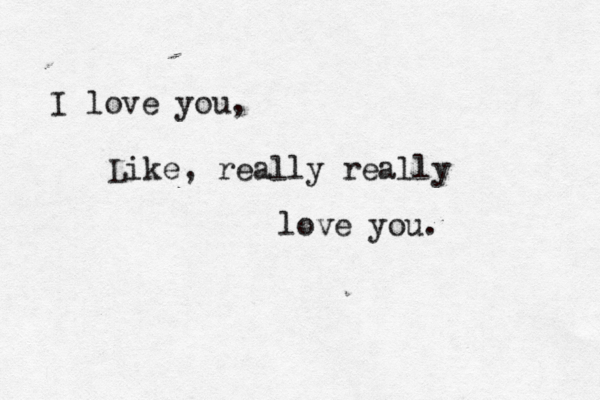 I love you,
Like, really really
love you.